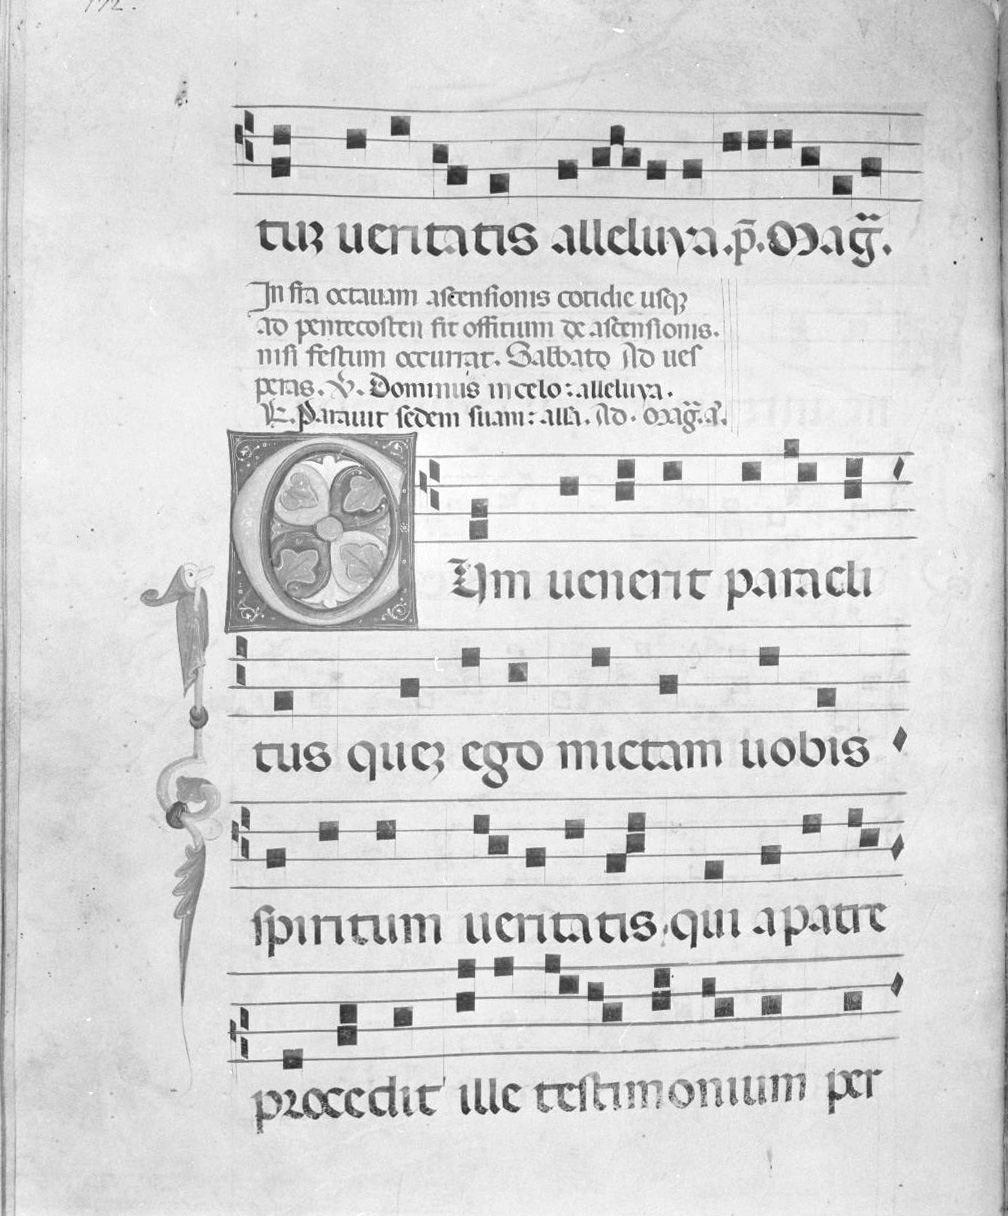 172.
tur ueritatis alleluya. p̄. Mag̃.
In fra octauam ascensionis cotidie usq;
ad pentecosten fit offitium de ascensionis.
nisi festum occurrat. Sabbato Ad ues
peras. V̄. Dominus in celo: alleluya.
R̄. Parauit sedem suam: alla. Ad. Mag̃. a̅.
Cum uenerit paracli
tus quez ego mictam uobis
spiritum ueritatis qui a patre
procedit ille testimonium per